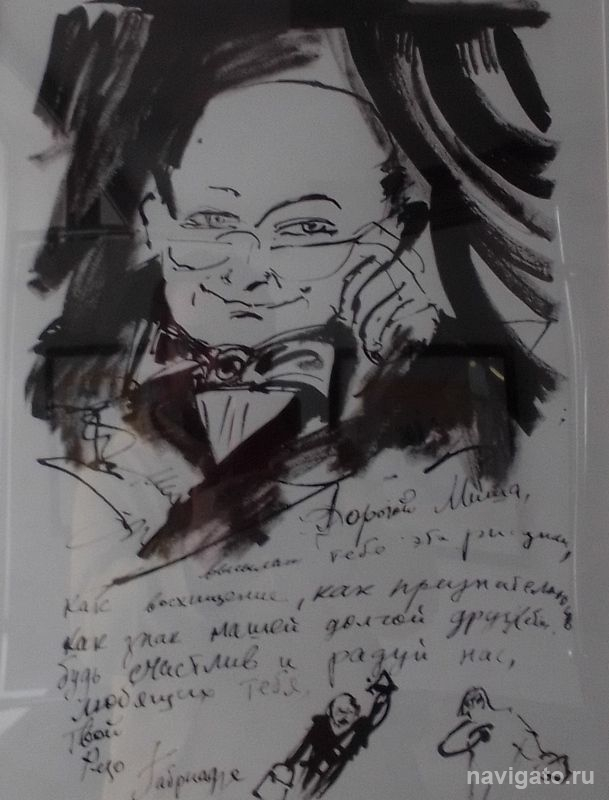 Дорогой Миша,
высылаю тебе эти рисунки,
как восхищение, как признательность
как знак нашей долгой дружбы.
будь счастлив и радуй нас,
любящих тебя,
твой
Резо Габриадзе
navigato.ru